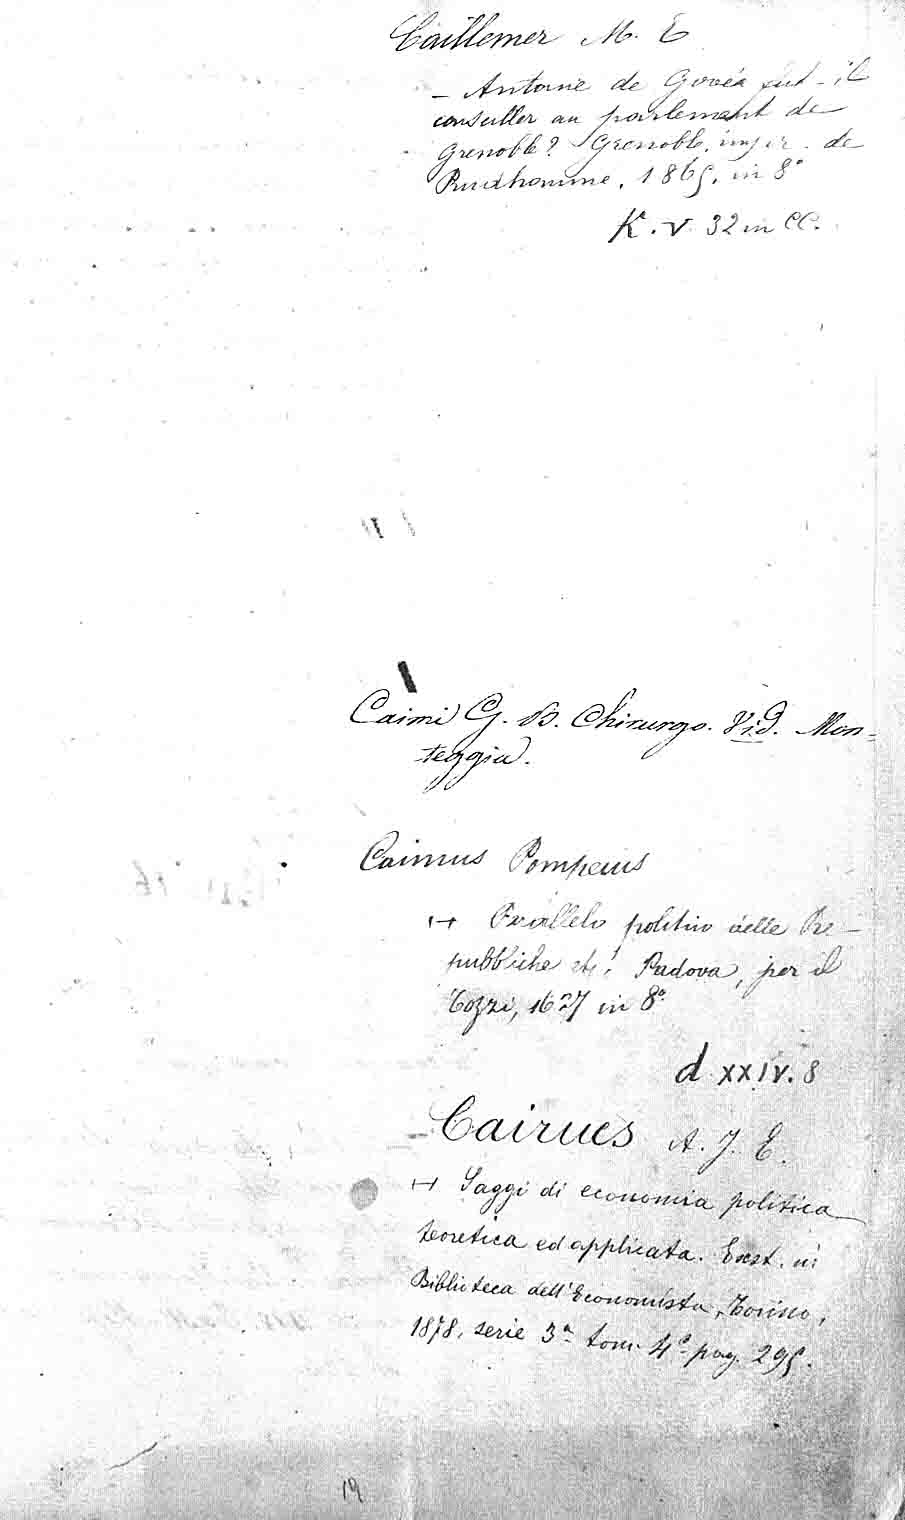 Caillemer M. E
— Antoine de Govéa fut-il
conseiller au parlement de
Grenoble? Grenoble, impr. de
Prudhomme, 1865, in 8°
K. V 32 in CC.
Caimi G. B. Chirurgo. Vid. Mon=
teggia.
Caimus Pompeius
Parallelo politico delle Re-
pubbliche etc. Padova, per il
Tozzi, 1627 in 8°
d XXIV. 8
Cairues A. J. E.
Saggi di economia politica
teoretica ed applicata. Exst. in
Biblioteca dell'Economista, Torino,
1878, serie 3ª tom. 4° pag. 295.
19